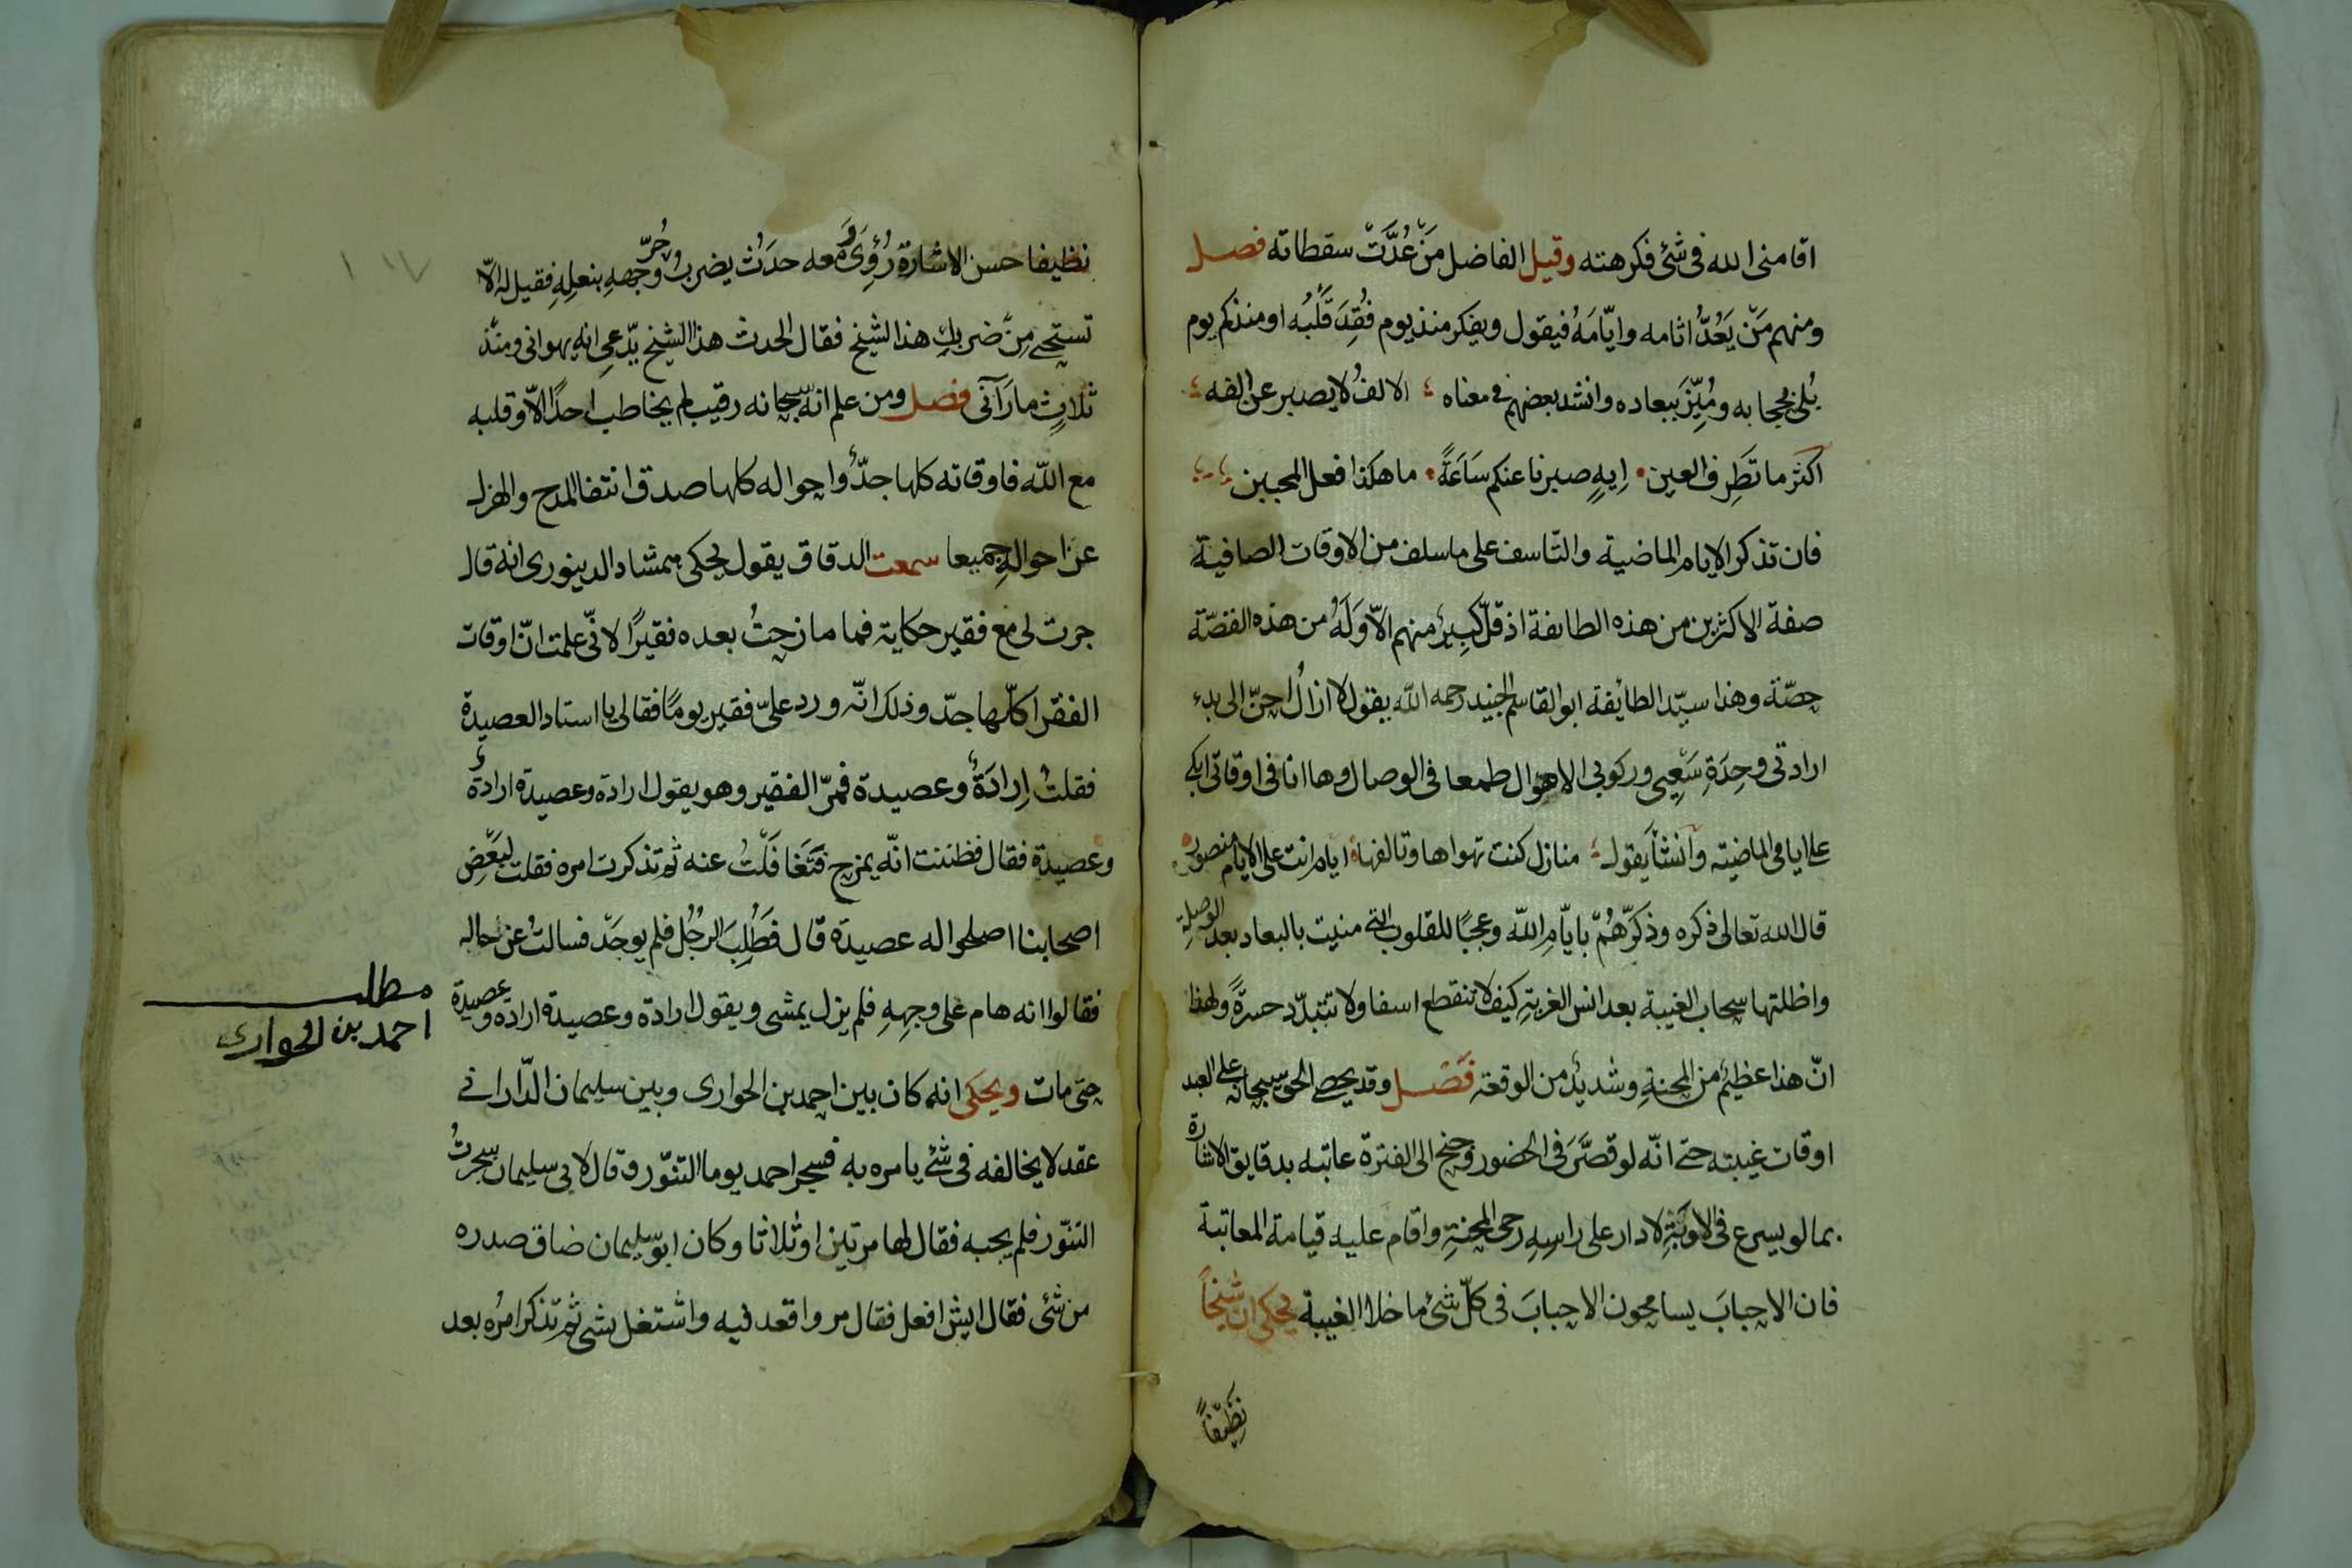 اقامنى الله فى شئ فكرهته وقيل الفاضل مَنْ عُدَّتْ سقطاته فصل
ومنهم مَنْ يَعُدُّ اثامه وايّامَهُ فيقول ويفكر منذ يوم فُقِدَ قَلْبُه او منذ كم يوم
بُلى بحجابه ومُيِّزَ ببعاده وانشد بعضهم فى معناه الالفُ لا يصبر عن الفه
اكثر ما تَطرِف العين ايهٍ صبرنا عنكم سَاعَةً ما هكذا فعل المحبين
فان تذكر الايام الماضية والتاسف على ما سلف من الاوقات الصافية
صفة الاكثرين من هذه الطائفة اذ قلّ كبيرٌ منهم الّا وَلَهُ من هذه القصّة
حصّة وهذا سيّد الطائفة ابو القاسم الجنيد رحمه الله يقول لا ازالُ احنّ الى بدء
ارادتى وحِدَةِ سَعِيى وركوبى الاهوال طمعا فى الوصال وها انا فى اوقاتى ابكى
على ايامى الماضيته وانشأ يقول منازل كنت تهواها وتالفها ايام انت على الايام منصور
قال الله تعالى ذكره وذكرّهُمْ بايّامِ الله وعجبًا للقلوب التى منيت بالبعاد بعد الوصلة
واظلتها سحاب الغيبة بعد انس الغربةِ كيف لا تنقطع اسفا ولا تتبدّد حسرةً ولهذا
انّ هذا عظيمٌ من المحنةِ وشديدٌ من الوقعة فَصْل وقد يحصى الحق سبحانه على العبد
اوقات غيبته حتى انّه لو قصَّرَ فى الحضور وجنح الى الفترة عاتبه بدقايق الاشارة
بما لو يسرع فى الاوبَةِ لادار على راسِهِ رحى المحنةِ واقام عليه قيامة المعاتبة
فان الاحبابَ يسامحون الاحبابَ فى كلّ شئ ما خلا الغيبة يحكى ان شيخاً
نظيفاً
نظيفا حسن الاشارة رُؤِىَ وَمعه حدَثٌ يضربُ حُرّ وجههِ بنعلِهِ فقيل له الّا
تستحى مِنْ ضربِكِ هذا الشيخ فقال الحدث هذا الشيخ يدّعى انه يهوانى ومنذ
ثلاثٍ ما رَآنى فصل ومن علم انّه سبحانه رقيب لم يخاطب احدًا الّا وقلبه
مع الله فاوقاته كلها جدّ واحواله كلها صدق انتفا المدح والهزل
عن احوالهِ جميعا سمعت الدقاق يقول يحكى ممشاد الدينورى انه قال
جرت لى مع فقير حكاية فما مازحتُ بعده فقيرًا لانّى علمت انّ اوقات
الفقرا كلّها جدّ وذلك انّه ورد علىّ فقير يومًا فقال يا استاد العصيدة
فقلتُ اِرادَةٌ وعصيدة فمرّ الفقير وهو يقول ارادة وعصيدة ارادةٌ
وعصيدة فقال فظننت انّه يمزح فَتَغافَلْتُ عنه ثم تذكرت امره فقلت لِبَعْضِ
اصحابنا اصلحوا له عصيدة قال فَطُلِبَ الرجُل فلم يوجَدْ فسالتُ عن حاله
فقالوا انه هام على وجهِهِ فلم يزل يمشى ويقول ارادة وعصيدة ارادة وعصيدة
حتى مات ويحكى انه كان بين احمد بن الحوارى وبين سليمان الدّارانى
عقد لا يخالفه فى شئ يامره به فسجر احمد يوما التنّور وقال لابى سليمان سجرتُ
التنّور فلم يجبه فقال لها مرتين او ثلاثا وكان ابو سليمان ضاق صدره
من شئ فقال ايش افعل فقال مر واقعد فيه واشتغل بشى ثم تذكر امرُه بعد
مطلب
احمد بن الحوارى